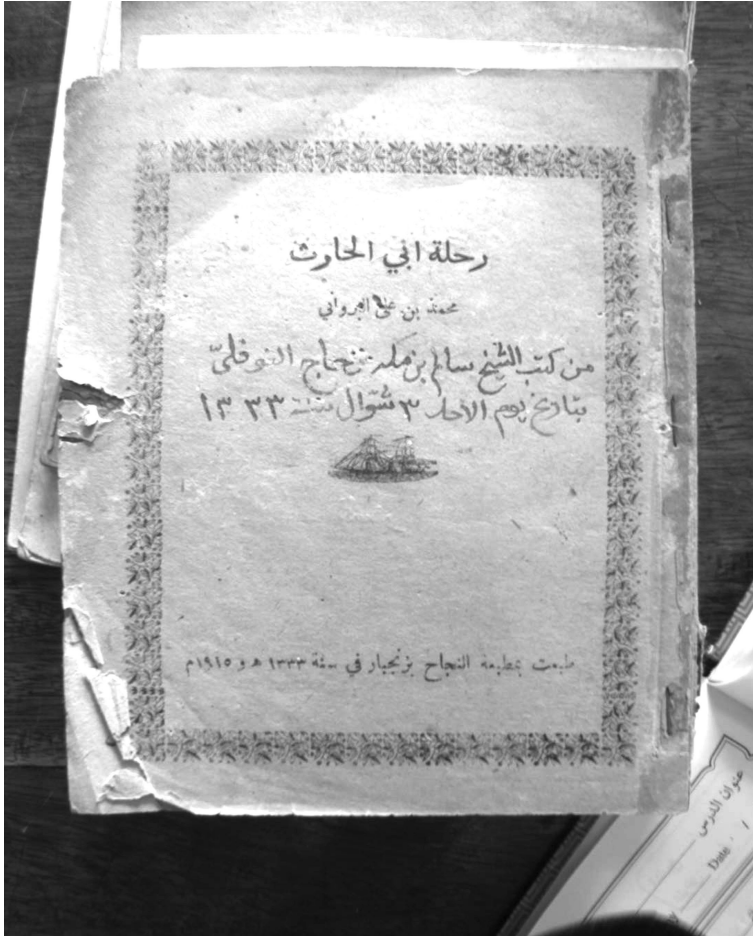 رحلة ابي الحارث
محمد بن علي البرواني
من كتب الشيخ سالم بن حاج النوفليّ
بتاريخ يوم الأحد ٣ شوّال سنة ١٣٣٣
طبعت بمطبعة النجاح بزنجبار في سنة ١٣٣٣ ه و ١٩١٥م
عنوان الدرس
Date
/